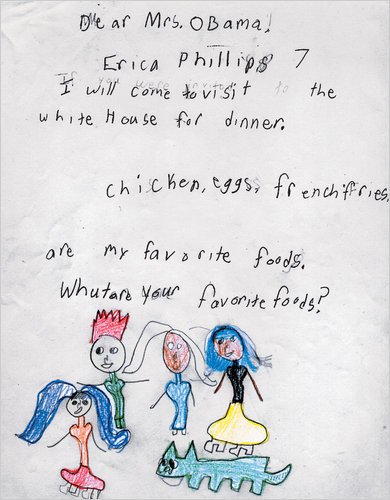 Dear Mrs. OBama!
Erica Phillips 7
I will come to visit to the
white House for dinner.
chicken, eggs, frenchfries,
are my favorite foods.
Whutare your favorite foods?